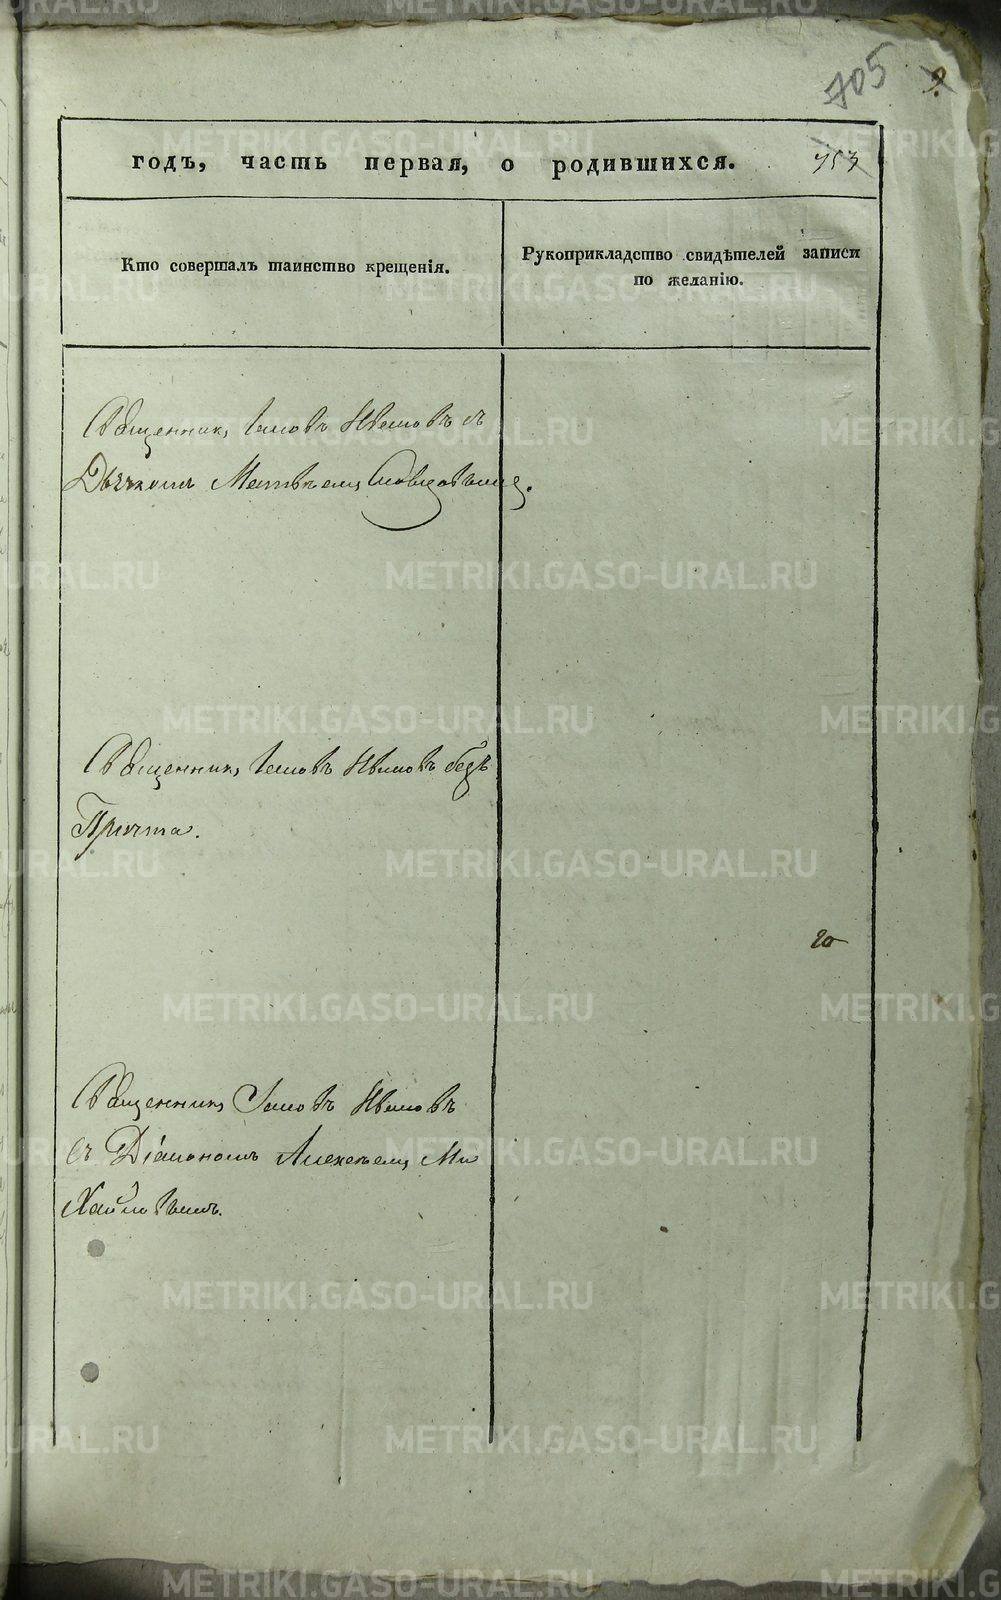 705
9
годъ, часть первая, о родившихся.
753
Кто совершалъ таинство крещенія.
Рукоприкладство свидѣтелей записи
по желанію.
Священникъ Іаковъ Ивановъ съ
Дьячкомъ Матвѣемъ
Священникъ Іаковъ Ивановъ безъ
Причта.
Священникъ Іаковъ Ивановъ
съ Діакономъ Алексѣемъ Ми
хайловымъ.
METRIKI.GASO-URAL.RU